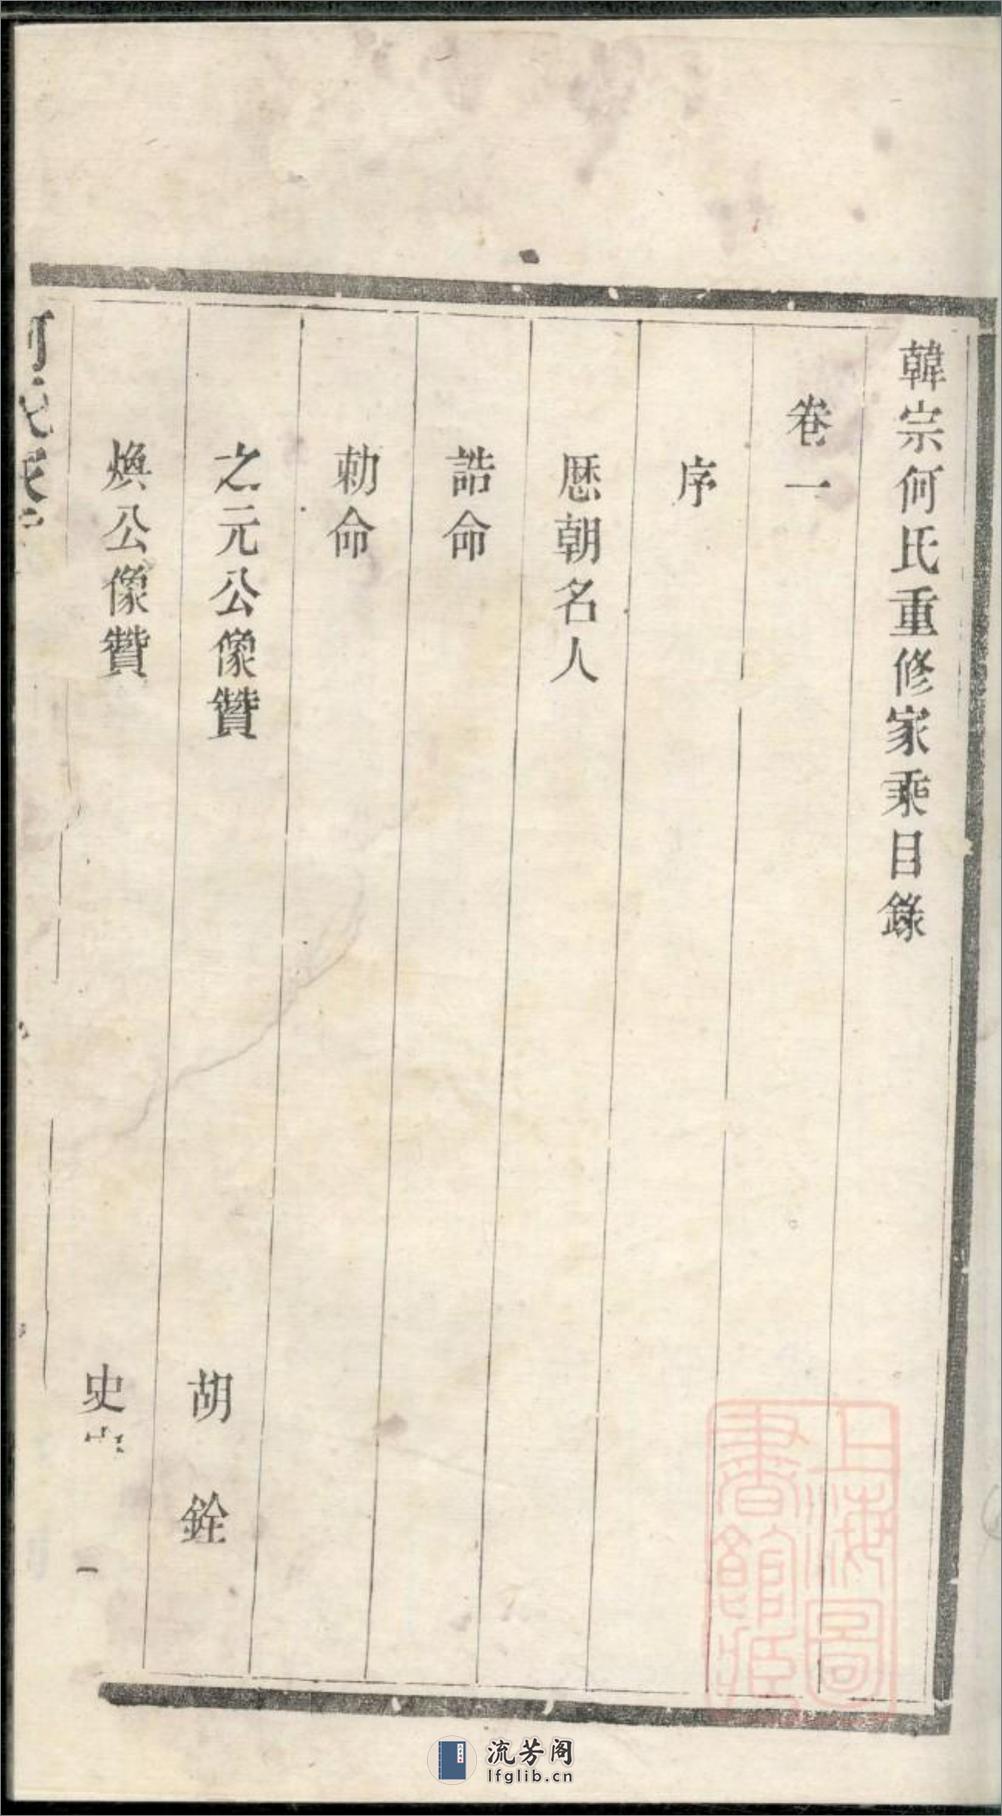 韓宗何氏重修家乘目錄
卷一
序
厯朝名人
誥命
勅命
之元公像贊 胡銓
煥公像贊 史
上海圖書館藏
流芳阁
lfglib.cn